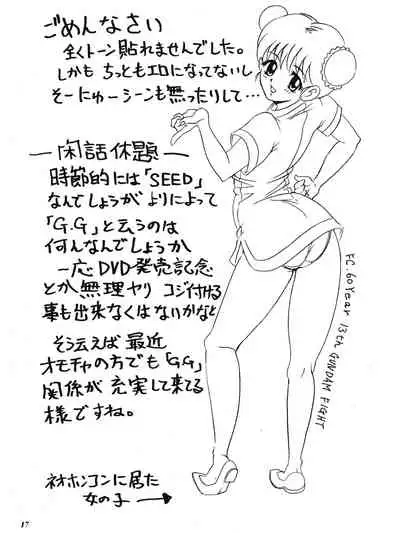 ごめんなさい
全くトーン貼れませんでした。
しかも ちっともエロになってないし
そーにゅーシーンも無ったりして…
―閑話休題―
時節的には「SEED」
なんでしょうが よりによって
「G.G」と云うのは
何んなんでしょうか
一応DVD発売記念
とか無理ヤリ コジ付ける
事も出来なくはないかなと
そう云えば 最近
オモチャの方でも「G.G」
関係が 充実して来てる
様ですね。
ネオホンコンに居た
女の子 →
F.C.60 Year 13th GUNDAM FIGHT
17